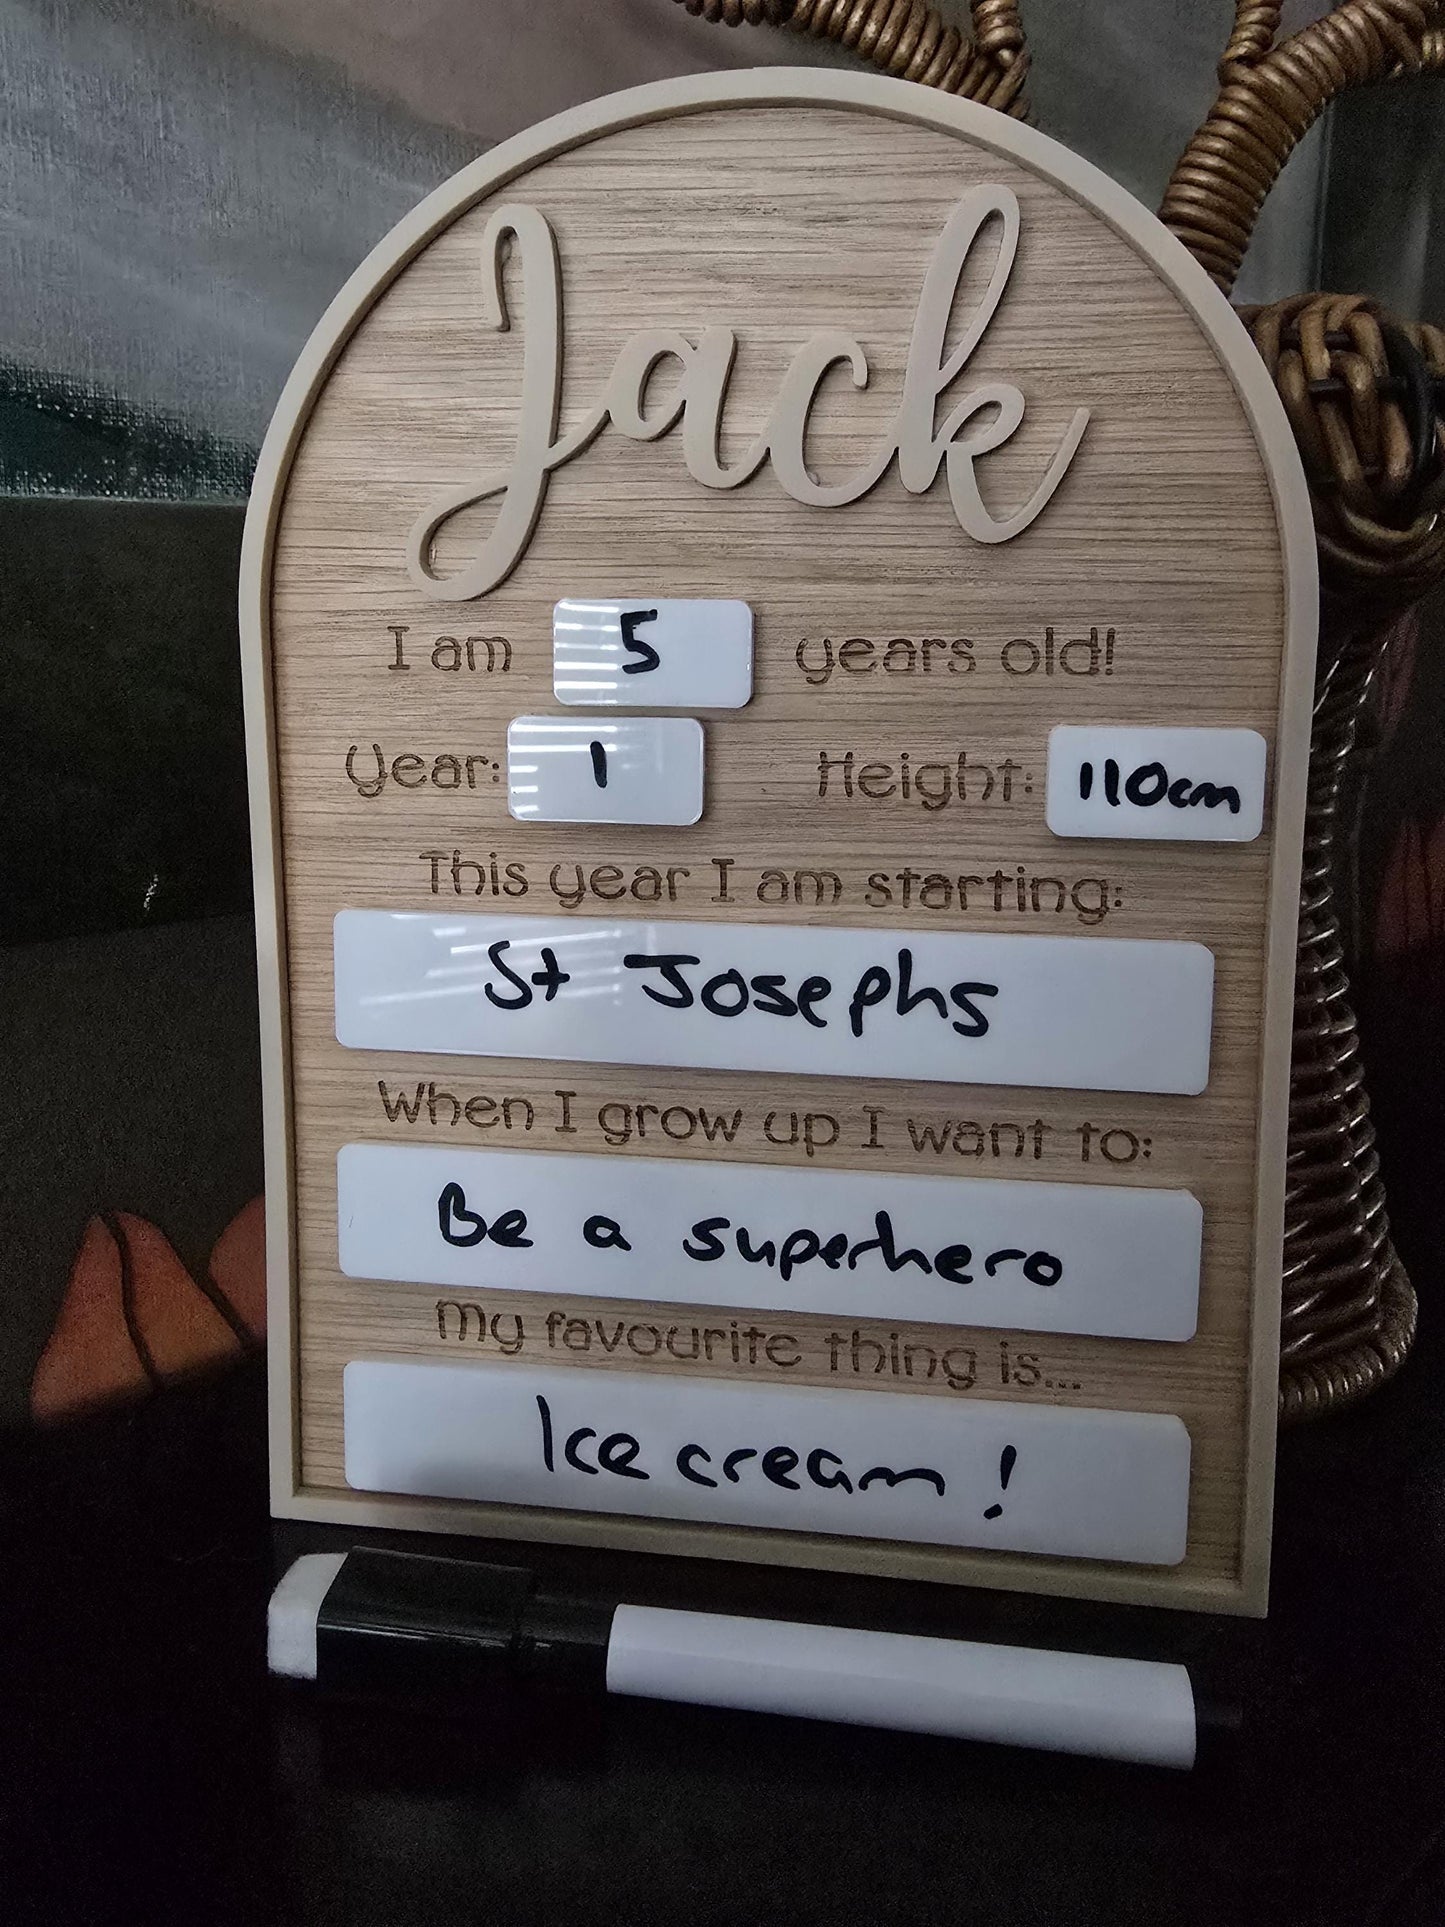 Jack
I am 5 years old!
Year: 1 Height: 110cm
This year I am starting:
St Josephs
When I grow up I want to:
Be a superhero
My favourite thing is...
Ice cream!